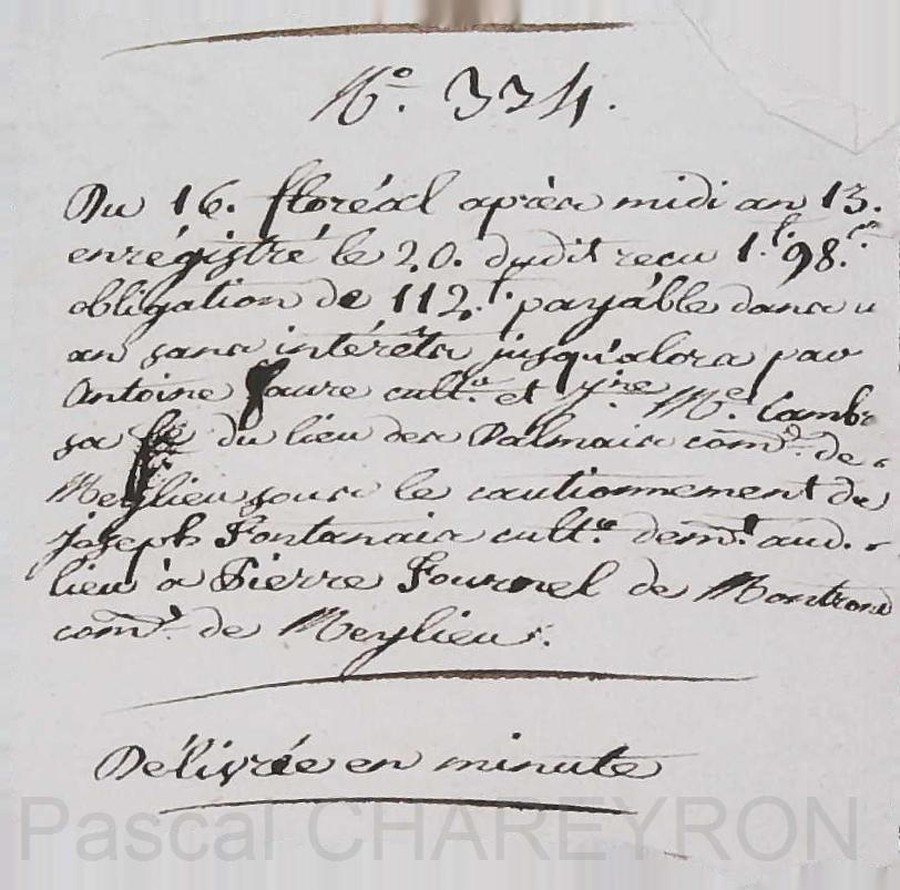 N.° 334.
Du 16. floréal après midi an 13.
enrégistré le 20. dudit reçu 1.f. 98.c.
obligation de 112.f. payáble dans u
an sans intérêts jusqu'alors par
Antoine faure cult.r et M.e Combe
sa fe du lieu des Palmais com.e de
Meylieu sous le cautionnement de
joseph Fontanais cult.r dem.t aud.
lieu à Pierre Fournel de Montrond
com.e de Meylieu.
Délivrée en minute
Pascal CHAREYRON